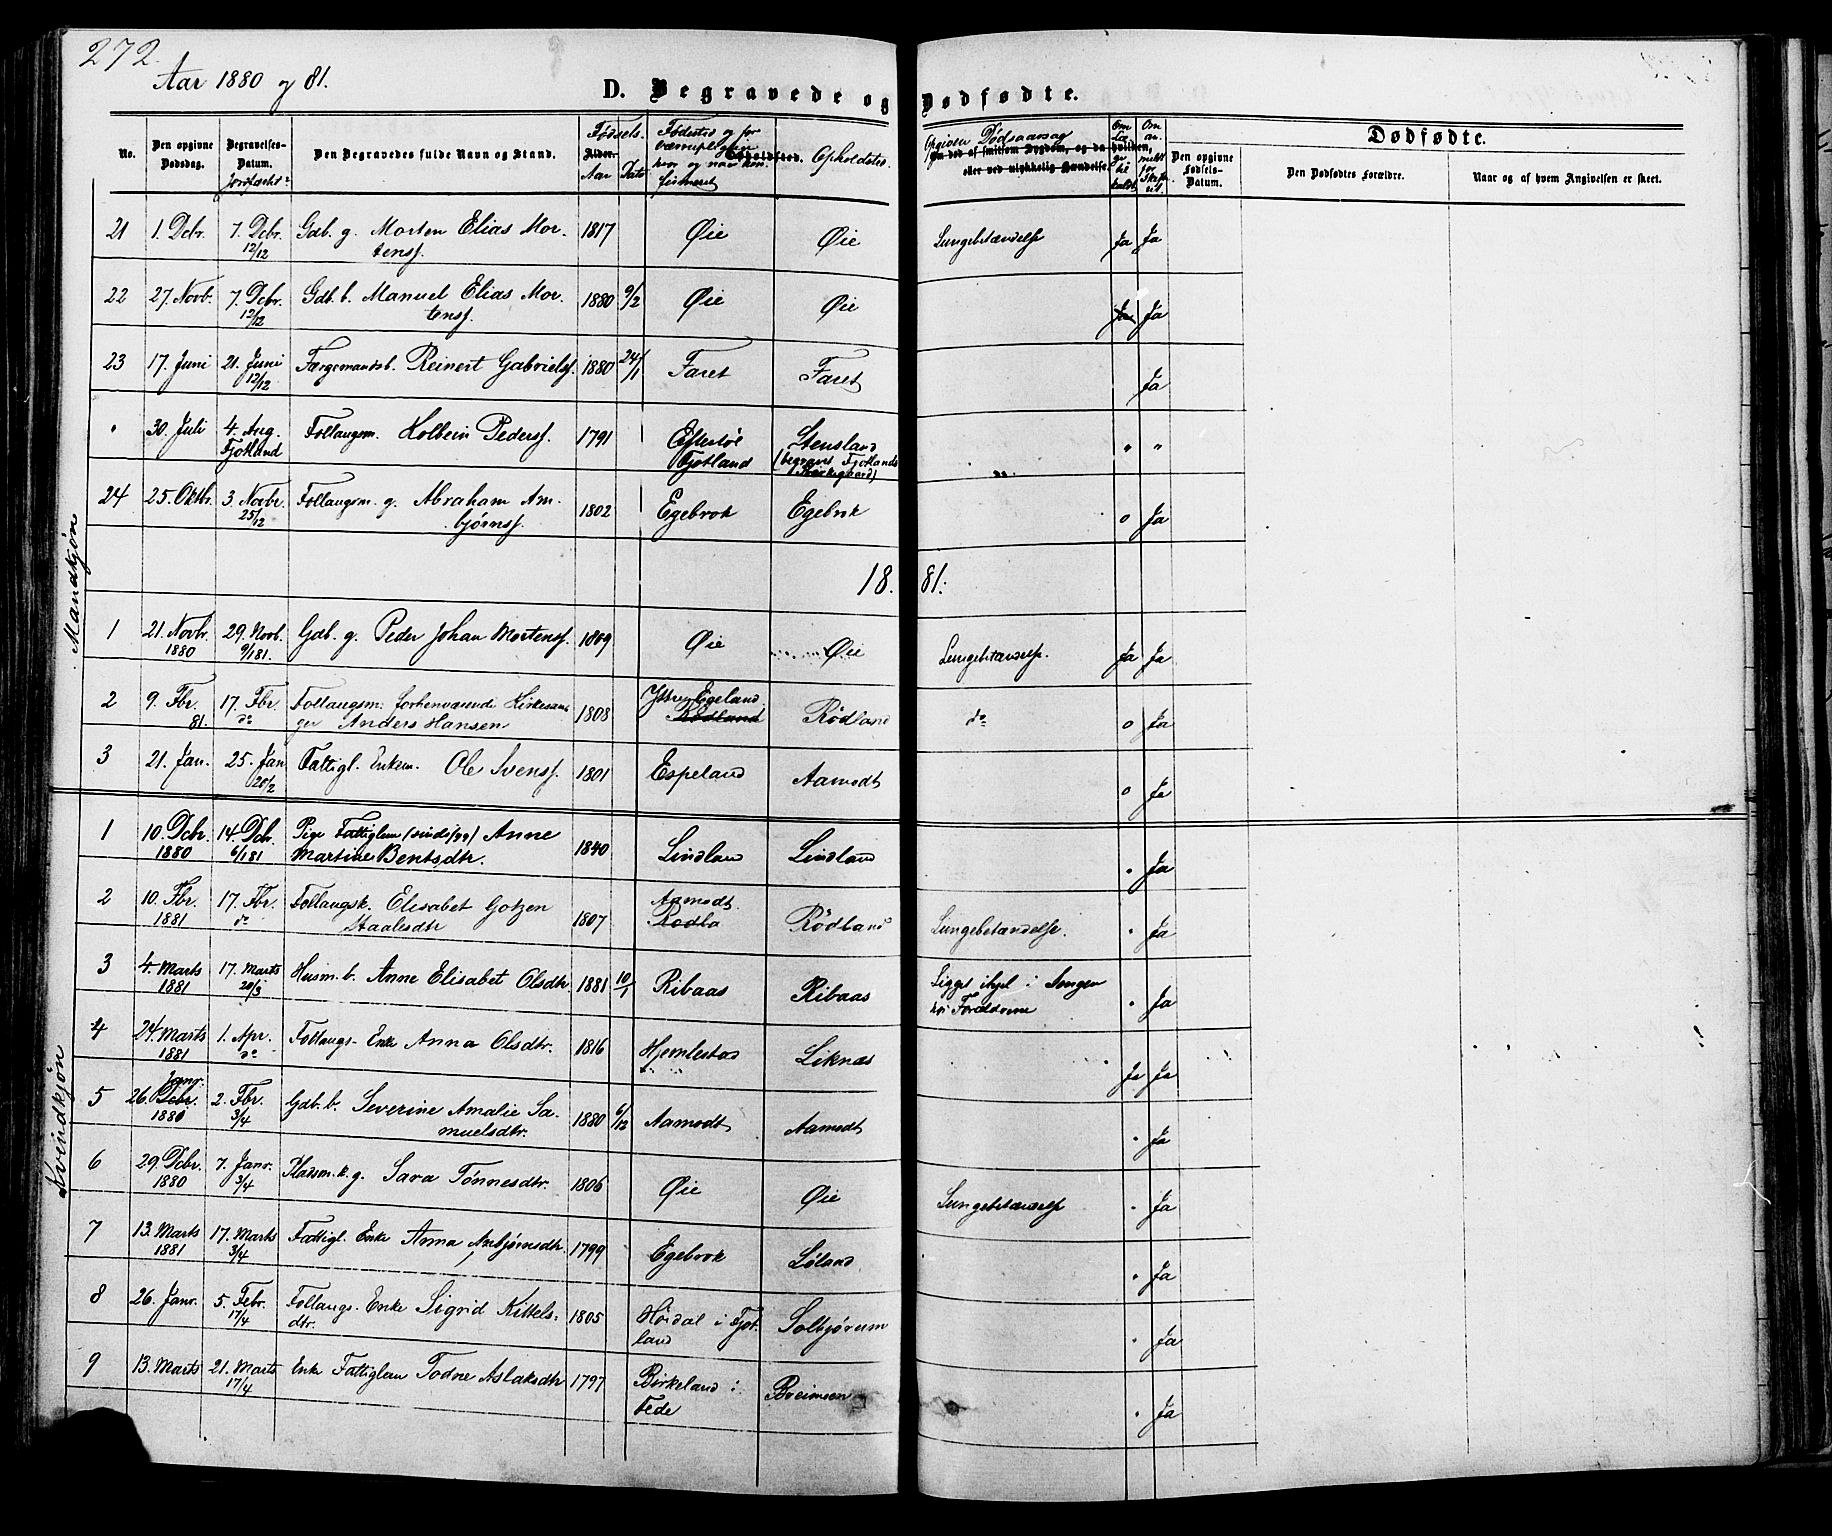 272.
Aar 1880 og 81.
D. Begravede og Dødfødte.
No.
Den opgivne Dødsdag.
Begravelses-Datum.
Jordfæstet
Den Begravedes fulde Navn og Stand.
Fødsels-
Alder.
Aar
Dato
Fødested og for
Opholdssted.
Opholdsted.
Opgiven Dødsaarsag
Om død af smitsom Sygdom, og da hvilken,
eller ved ulykkelig Hændelse.
Dødfødte.
Den opgivne Fødsels-Datum.
Den Dødfødtes Forældre.
Naar og af hvem Angivelsen er skeet.
Mandkjøn
21 1. Dcbr. 7. Dcbr. 12/12 Gdb. g. Morten Elias Mortensf. 1817 Øie Øie Lungebetændelse Ja Ja
22 27. Novb. 7. Dcbr. 12/12 Gdb. b. Manuel Elias Mortensf. 1880 9/2 Øie Øie Ja Ja
23 17. Juni 21. Juni 12/12 Færgemandsb. Reinert Gabrielsf. 1880 24/1 Faret Faret Ja
" 30. Juli 4. Aug. Fjotland Follaugsm. Holbein Pedersf. 1791 Eftestøl Fjotland Stensland (begravet Fjotlands Kirkegaard) " "
24 25. Oktbr. 3. Novbr. 25/12 Follaugsm. g. Abraham Ambjørnsf. 1802 Egebrok Egebrok o Ja
1881:
1 21. Novbr. 1880 29. Novb. 9/1 81. Gdb. g. Peder Johan Mortensf. 1809 Øie Øie Lungebetændelse. Ja Ja
2 9. Fbr. 81. 17. Fbr. do Follaugsm. forhenværende Kirkesanger Anders Hansen 1808 Egeland Rødland Rødland do o Ja
3 21. Jan. 25. Jan 20/2 Fattigl. Enkem. Ole Svensf. 1801 Espeland Aamodt o Ja
Kvindkjøn
1 10. Dcbr. 1880 14. Dcb. 6/1 81 Pige Fattiglem (sindssyg) Anne Martine Bentsdtr. 1840 Lindland Lindland " Ja
2 10. Fbr. 1881 17. Fbr. do Follaugsk. Elisabet Gotzen Staalesdtr 1807 Aamodt Rødla Rødland Lungebetændelse. " Ja
3 4. Marts 1881 17. Marts 20/3 Husm. b. Anne Elisabet Olsdtr. 1881 10/1 Ribaas Ribaas Ligget ihjel i Sengen hos Forældrene " Ja
4 24. Marts 1881 1. Apr. do Follaugs- Enke Anna Olsdtr. 1816 Hjemlestad Liknæs Ja Ja
5 26. Janr. Dcbr. 1880 2. Fbr. 3/4 Gdb. b. Severine Amalie Samuelsdtr. 1880 6/12 Aamodt Aamodt " Ja
6 29. Dcbr. 1880 7. Janr. 3/4 Pladsm. k. g. Sara Tønnesdtr. 1806 Øie Øie Lungebetændelse " Ja
7 13. Marts 1881 17. Marts 3/4 Fattigl. Enke Anna Anbjørnsdtr. 1799 Egebrok Løland " Ja
8 26. Janr. 5. Febr. 17/4 Follaugs- Enke Sigrid Kittelsdtr. 1805 Høidal i Fjotland Solbjørum " Ja
9 13. Marts 21. Marts 17/4 Enke Fattiglem Todne Aslaksdtr 1797 Birkeland i Fede Breimoen " Ja